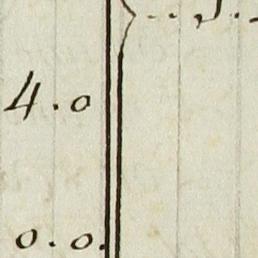 4.0
0.0.